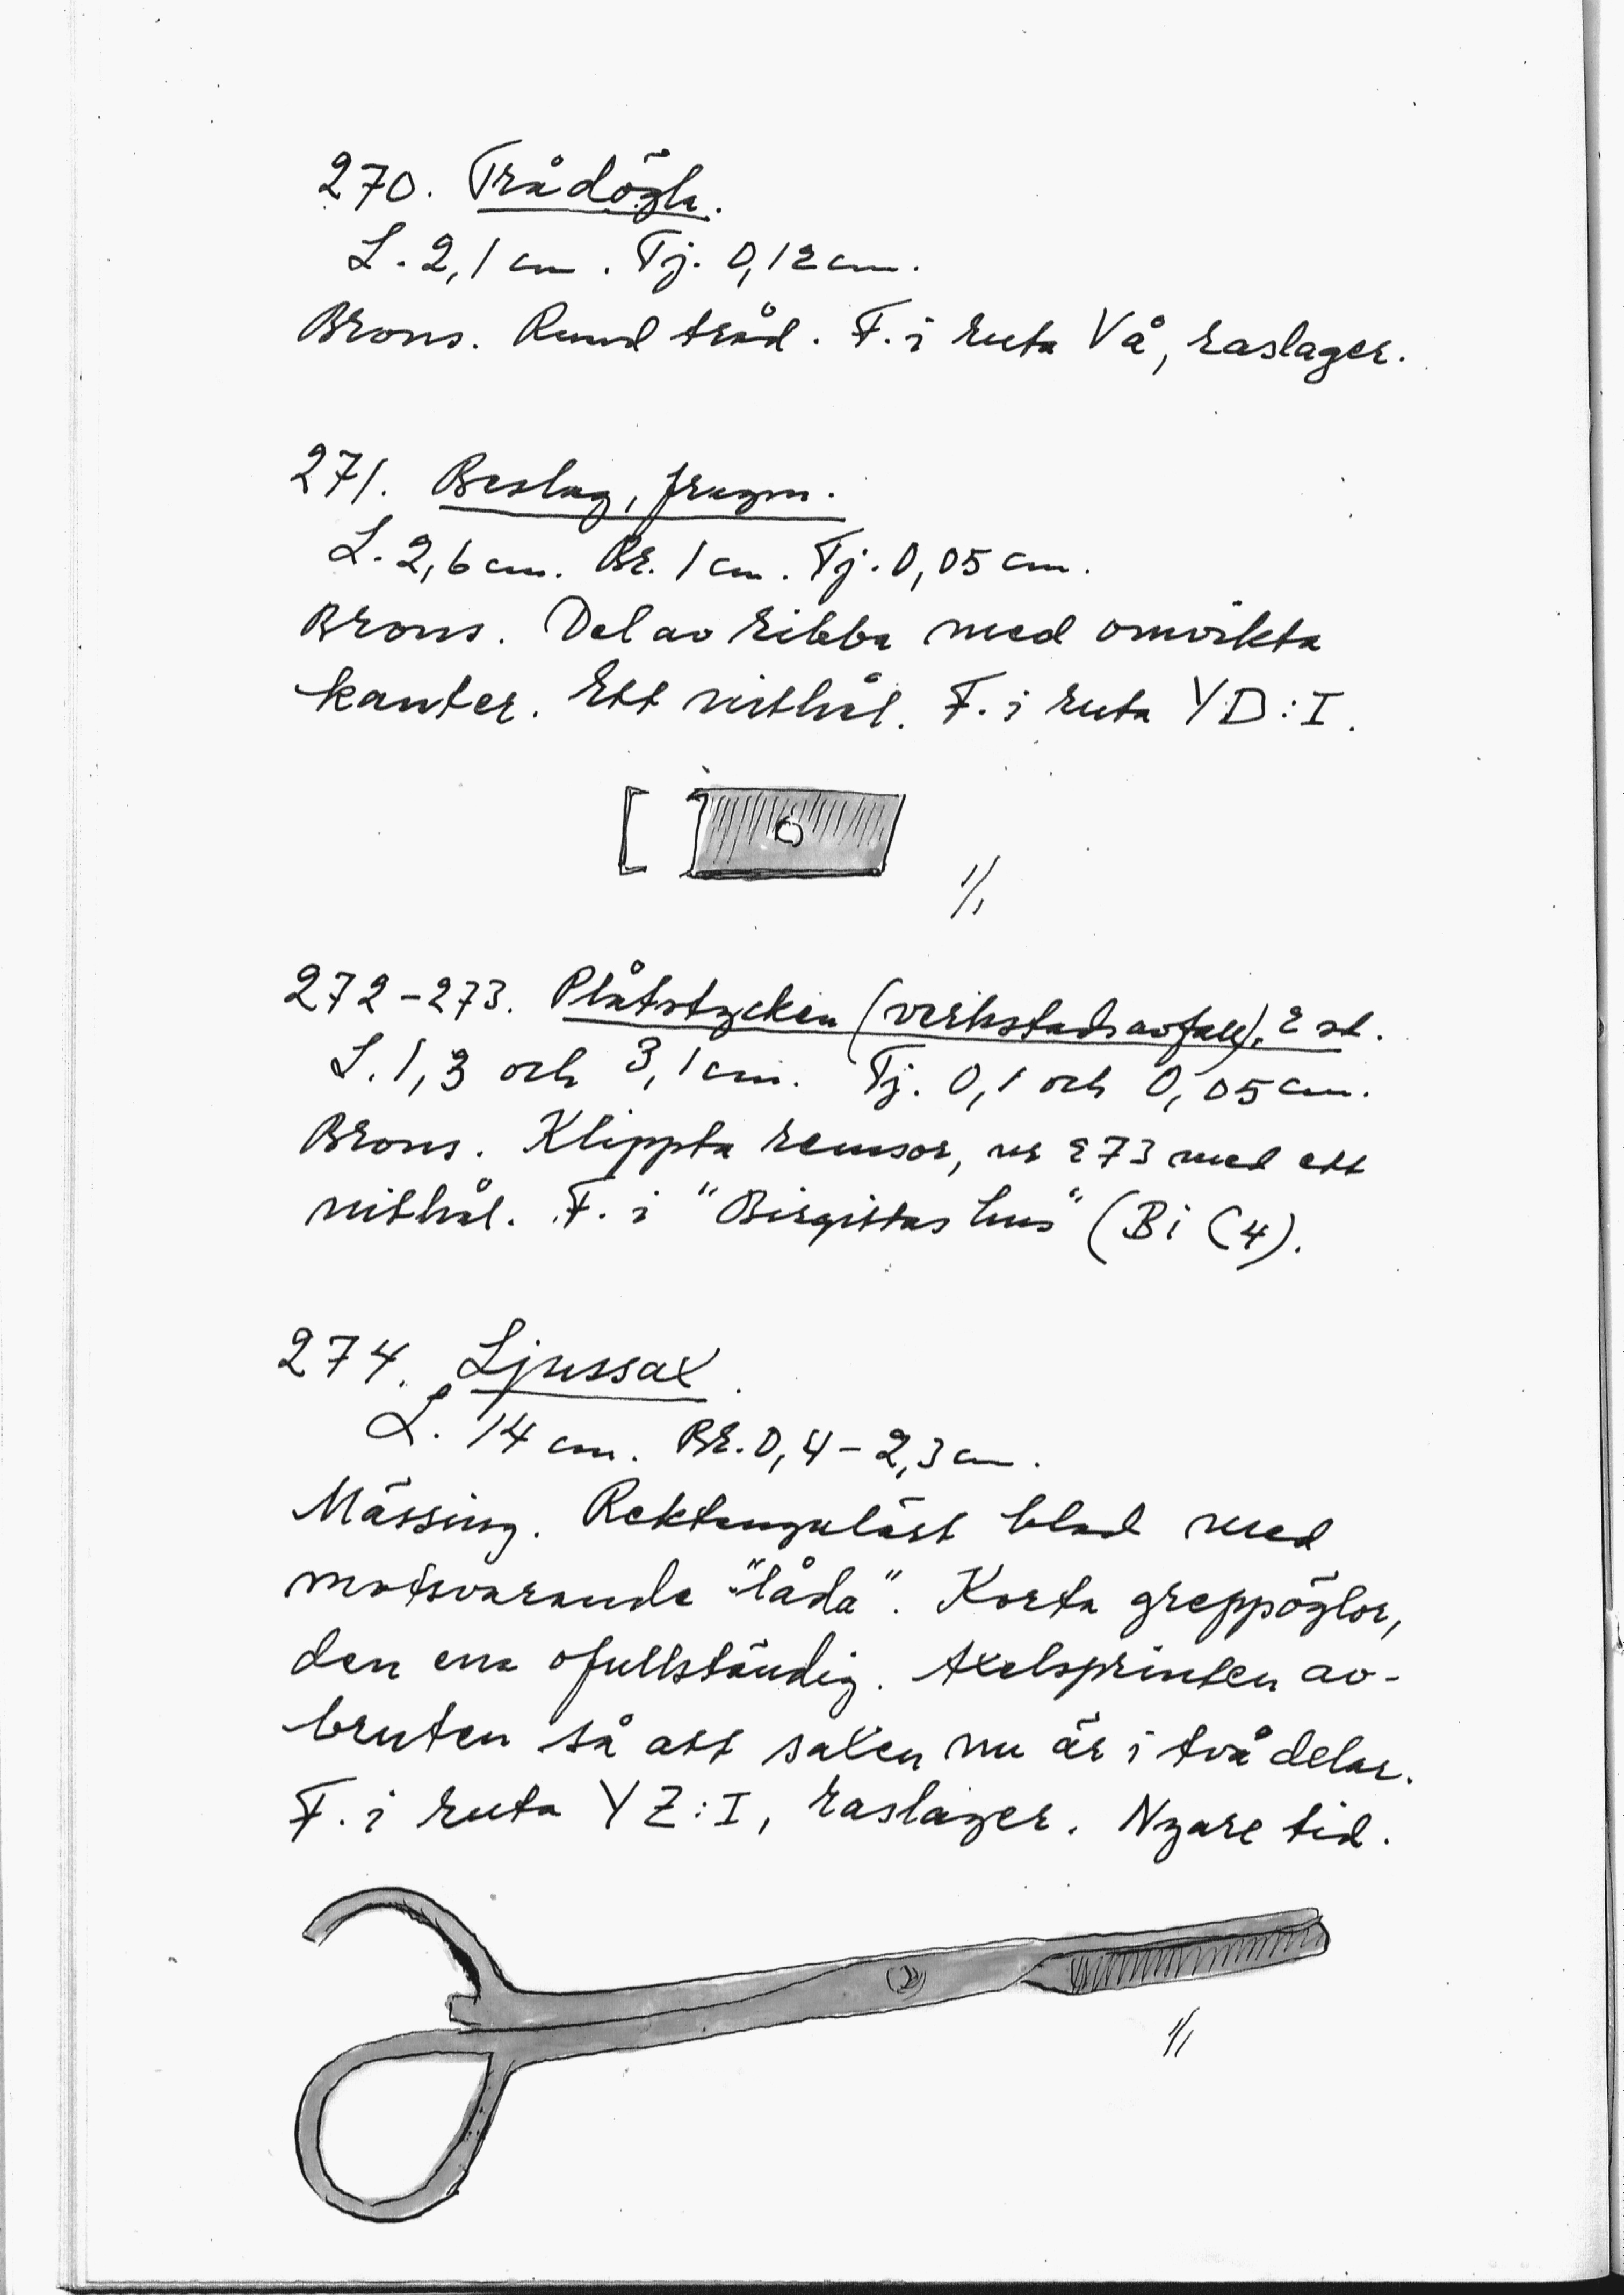 270. Trådögla.
L. 2,1 cm. Tj. 0,12 cm.
Brons. Rund tråd. F. i ruta Vå, raslager.
271. Beslag, fragm.
L. 2,6 cm. Br. 1 cm. Tj. 0,05 cm.
Brons. Del av ribba med omvikta
kanter. Ett nithål. F. i ruta YD:I.
1/1
272-273. Plåtstycken (verkstadsavfall), 2 st.
L. 1,3 och 3,1 cm. Tj. 0,1 och 0,05 cm.
Brons. Klippta remsor, nr 273 med ett
nithål. F. i "Birgittas hus" (Bi C4).
274. Ljussax.
L. 14 cm. Br. 0,4-2,3 cm.
Mässing. Rektangulärt blad med
motsvarande "låda". Korta greppöglor,
den ena ofullständig. Axelsprinten av-
bruten så att saxen nu är i två delar.
F. i ruta YZ:I, raslager. Nyare tid.
1/1